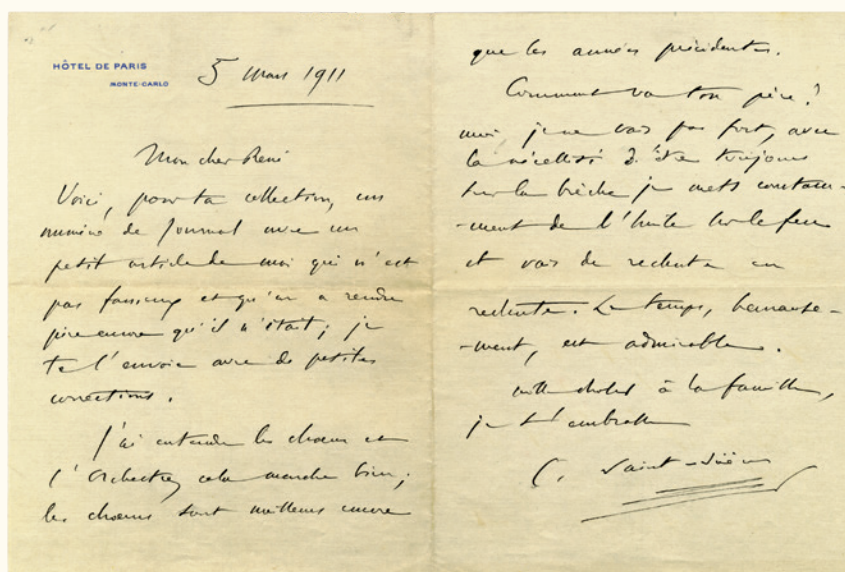 HÔTEL DE PARIS
MONTE-CARLO
5 mars 1911
Mon cher René
Voici, pour ta collection, un
numéro de Journal avec un
petit article de moi qui n'est
pas fameux et qu'on a rendu
pire encore qu'il n'était; je
te l'envoie avec de petites
corrections.
J'ai entendu les chœurs et
l'orchestre, cela marche bien;
les chœurs sont meilleurs encore
que les années précédentes.
Comment va ton père?
moi, je ne vais pas fort, avec
la nécessité d'être toujours
sur la brèche je mets constam-
-ment de l'huile sur le feu
et vais de rechute en
rechute. Le temps, heureuse-
-ment, est admirable.
mille choses à la famille,
je t'embrasse
C. Saint-Saëns